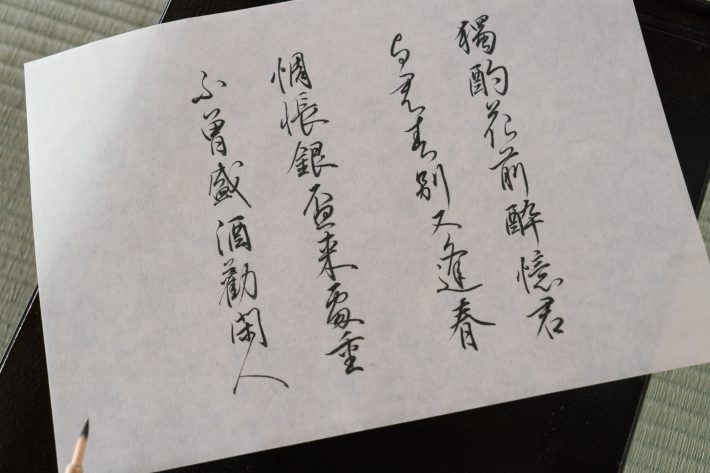 獨酌花前醉憶君
与君春別又逢春
惆悵銀盃来處重
不曽盛酒勸閑人